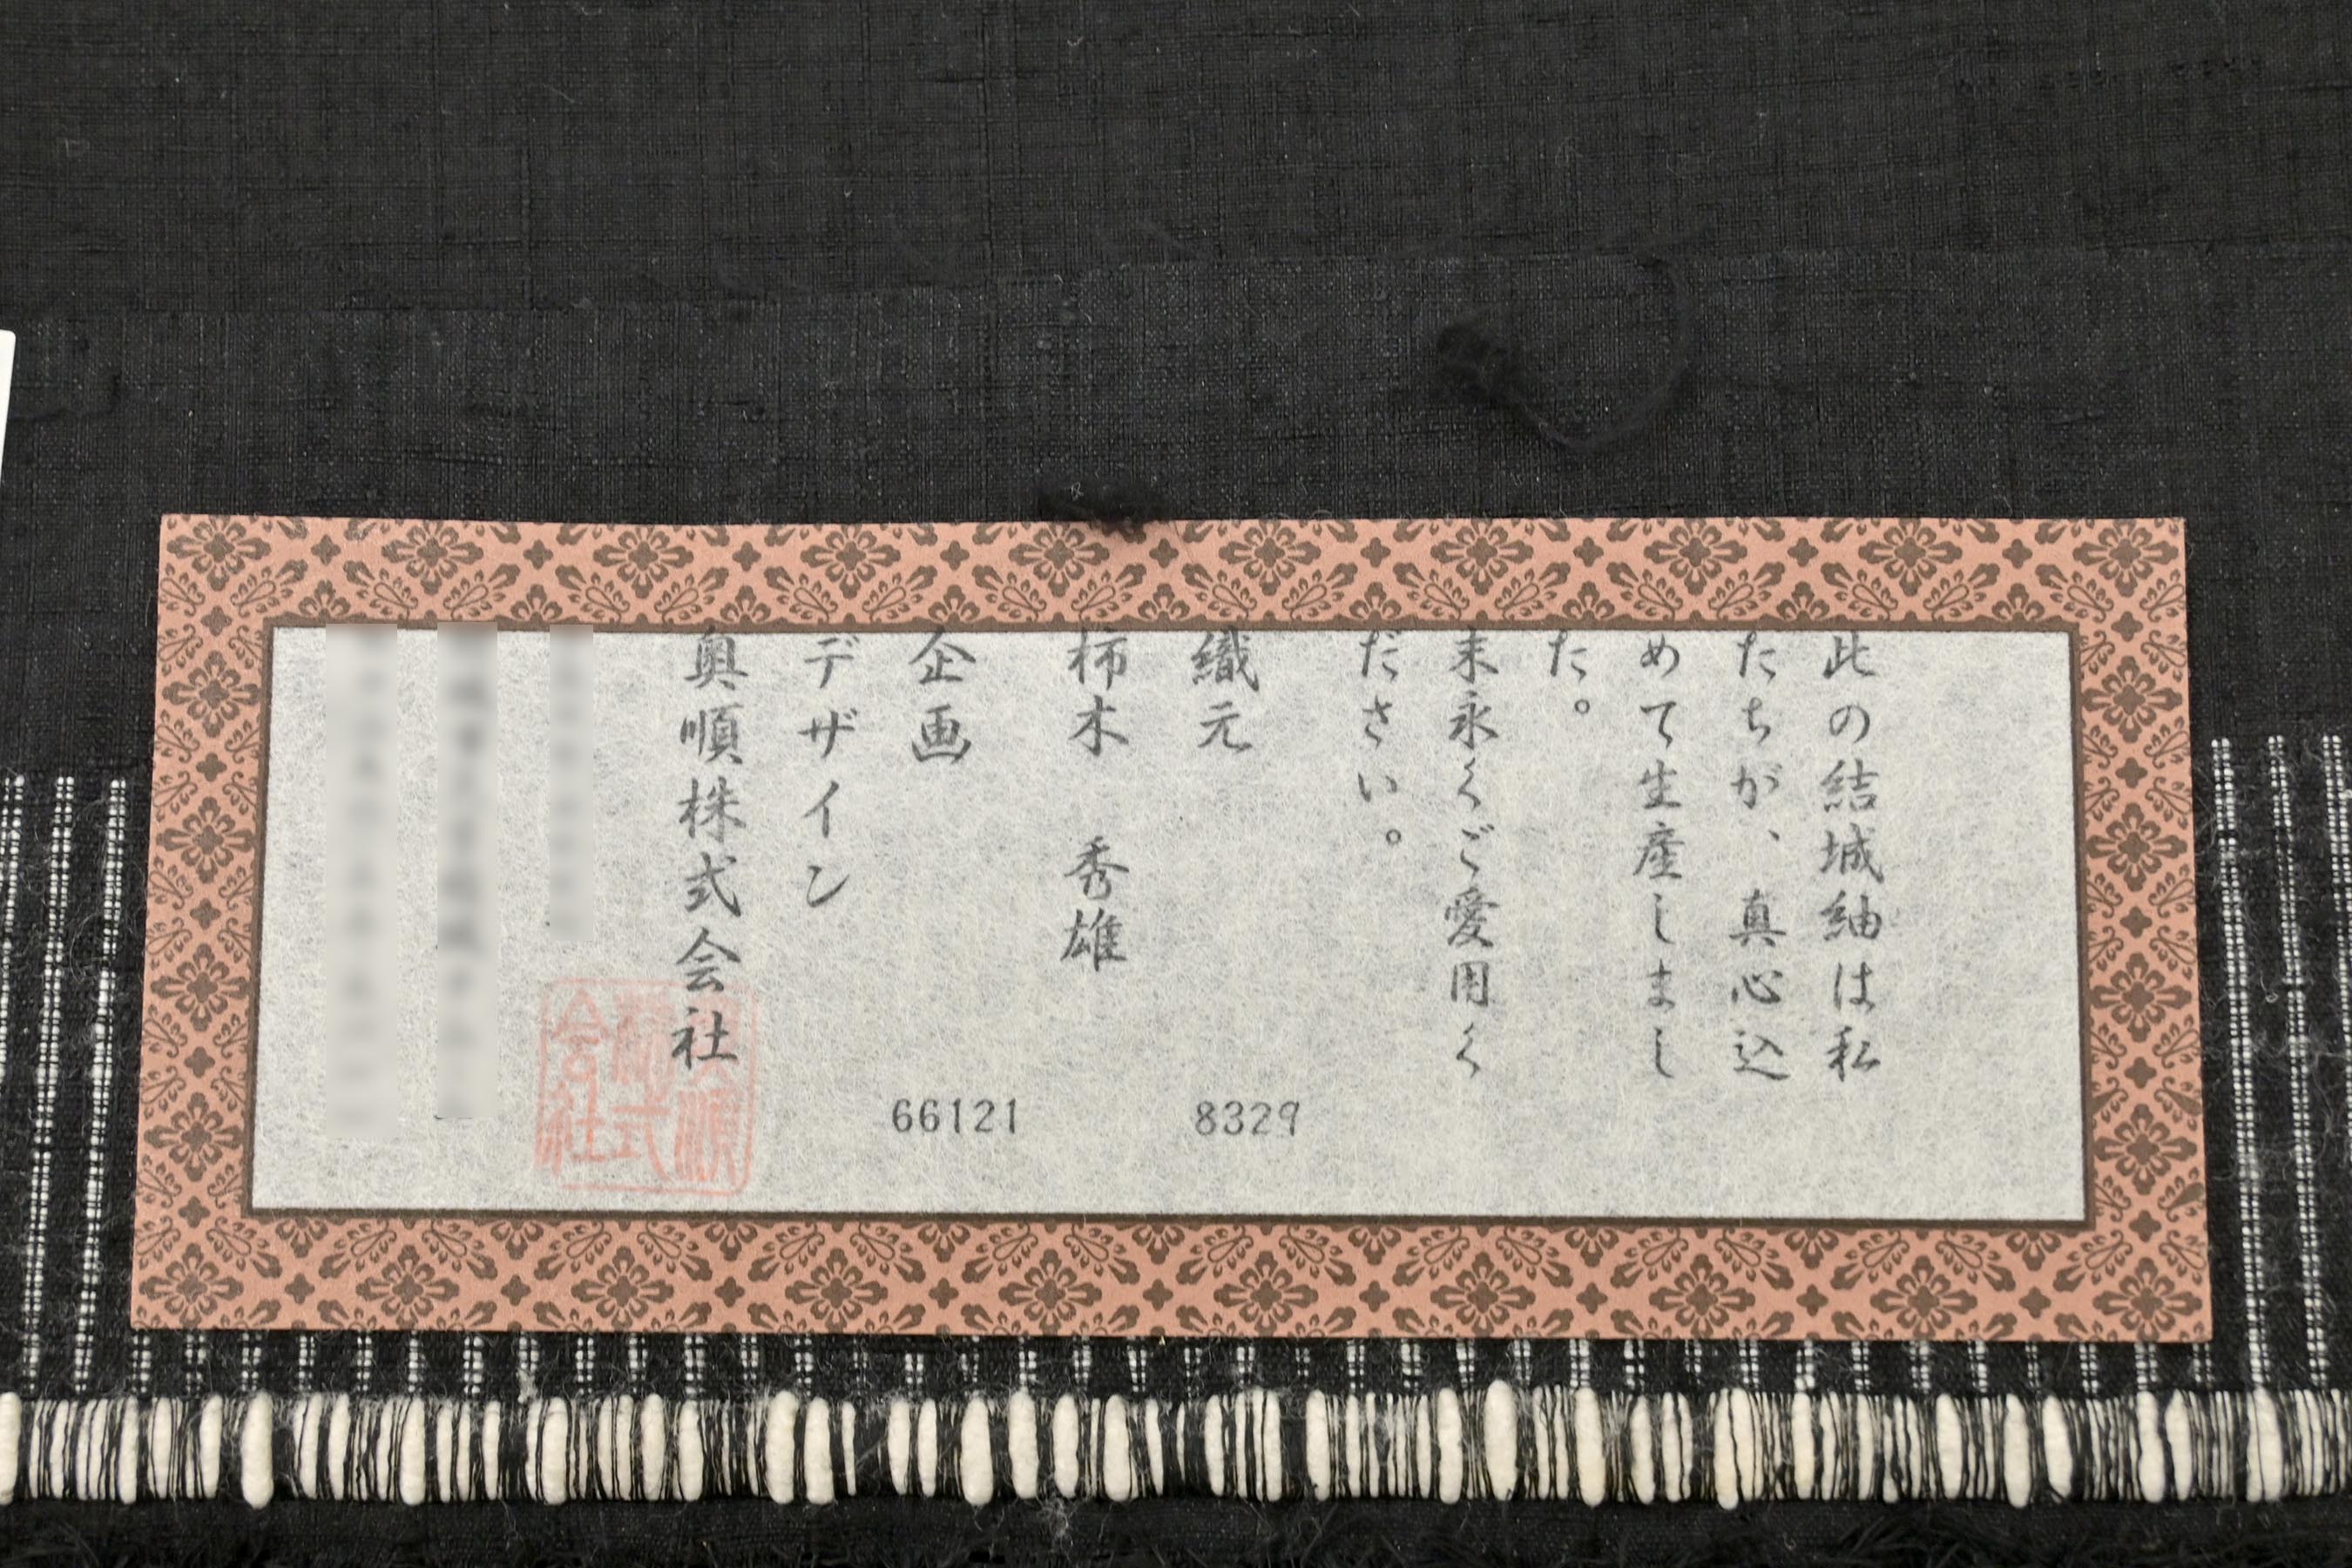 此の結城紬は私
たちが、真心込
めて生産しまし
た。
末永くご愛用く
ださい。
織元
8329
柿木 秀雄
企画
66121
デザイン
奥順株式会社